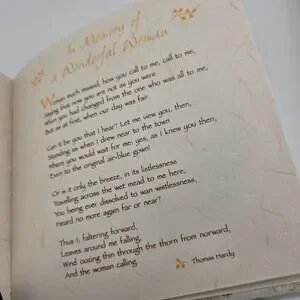 In Memory of
a Wonderful Woman
Woman much missed, how you call to me, call to me,
Saying that now you are not as you were
When you had changed from the one who was all to me,
But as at first, when our day was fair.
Can it be you that I hear? Let me view you, then,
Standing as when I drew near to the town
Where you would wait for me: yes, as I knew you then,
Even to the original air-blue gown!
Or is it only the breeze, in its listlessness
Travelling across the wet mead to me here,
You being ever dissolved to wan wistlessness,
Heard no more again far or near?
Thus I; faltering forward,
Leaves around me falling,
Wind oozing thin through the thorn from norward,
And the woman calling.
Thomas Hardy